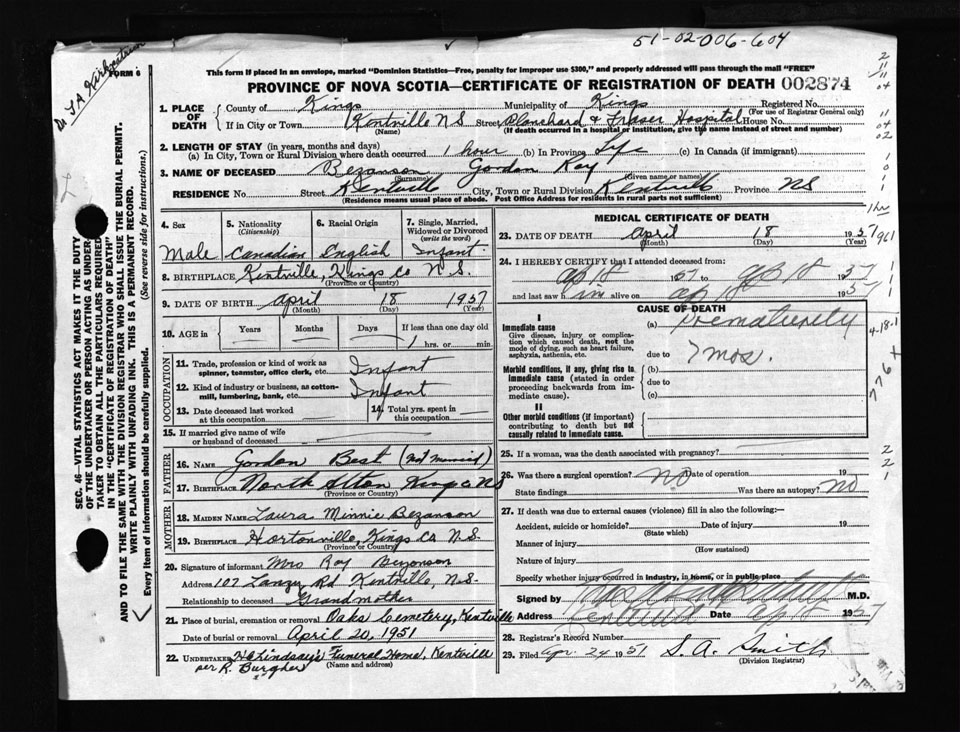 51-02-006-604
FORM 6
This form if placed in an envelope, marked "Dominion Statistics—Free, penalty for improper use $300," and properly addressed will pass through the mail "FREE"
PROVINCE OF NOVA SCOTIA—CERTIFICATE OF REGISTRATION OF DEATH 002874
1. PLACE OF DEATH
County of Kings Municipality of Kings Registered No.
(For use of Registrar General only)
If in City or Town Kentville N S Street Blanchard & Fraser Hospital House No.
(Name) (If death occurred in a hospital or institution, give the name instead of street and number)
2. LENGTH OF STAY (in years, months and days)
(a) In City, Town or Rural Division where death occurred 1 hour (b) In Province Life (c) In Canada (if immigrant)
3. NAME OF DECEASED Bezanson Gordon Ray
(Surname) (Given name or names)
RESIDENCE No. Street Kentville City, Town or Rural Division Kentville Province NS
(Residence means usual place of abode. Post Office Address for residents in rural parts not sufficient)
4. Sex
Male
5. Nationality (Citizenship)
Canadian
6. Racial Origin
English
7. Single, Married, Widowed or Divorced (write the word)
Infant
8. BIRTHPLACE Kentville, Kings Co N.S.
(Province or Country)
9. DATE OF BIRTH April 18 1951
(Month) (Day) (Year)
10. AGE in Years Months Days If less than one day old
1 hrs. or min.
OCCUPATION
11. Trade, profession or kind of work as spinner, teamster, office clerk, etc. Infant
12. Kind of industry or business, as cotton-mill, lumbering, bank, etc. Infant
13. Date deceased last worked at this occupation
14. Total yrs. spent in this occupation
15. If married give name of wife or husband of deceased
FATHER
16. NAME Gordon Best (not married)
17. BIRTHPLACE North Alton Kings Co NS
(Province or Country)
MOTHER
18. MAIDEN NAME Laura Minnie Bezanson
19. BIRTHPLACE Hortonville, Kings Co N.S.
(Province or Country)
20. Signature of informant Mrs Roy Bezanson
Address 107 Rd Kentville, N.S.
Relationship to deceased Grandmother
21. Place of burial, cremation or removal Oaks Cemetery, Kentville
Date of burial or removal April 20, 1951
22. UNDERTAKER Lindsay's Funeral Home, Kentville
(Name and address)
per R. Burgher
MEDICAL CERTIFICATE OF DEATH
23. DATE OF DEATH April 18 1951
(Month) (Day) (Year)
24. I HEREBY CERTIFY that I attended deceased from:
Ap 18 1951 to Ap 18 1951
and last saw him alive on Ap 18 1951
CAUSE OF DEATH
I
Immediate cause
Give disease, injury or complication which caused death, not the mode of dying, such as heart failure, asphyxia, asthenia, etc.
(a) Prematurity
due to 7 mos.
Morbid conditions, if any, giving rise to immediate cause (stated in order proceeding backwards from immediate cause).
(b)
due to
(c)
II
Other morbid conditions (if important) contributing to death but not causally related to immediate cause.
25. If a woman, was the death associated with pregnancy?
26. Was there a surgical operation? No Date of operation 19
State findings Was there an autopsy? No
27. If death was due to external causes (violence) fill in also the following:—
Accident, suicide or homicide? Date of injury 19
(State which)
Manner of injury
(How sustained)
Nature of injury
Specify whether injury occurred in industry, in home, or in public place
Signed by M.D.
Address Kentville Date Ap 18 1951
28. Registrar's Record Number
29. Filed Apr. 24 1951 S. A. Smith
(Division Registrar)
SEC. 46—VITAL STATISTICS ACT MAKES IT THE DUTY
OF THE UNDERTAKER OR PERSON ACTING AS UNDERTAKER TO OBTAIN ALL THE PARTICULARS REQUIRED
IN THE "CERTIFICATE OF REGISTRATION OF DEATH"
AND TO FILE THE SAME WITH THE DIVISION REGISTRAR WHO SHALL ISSUE THE BURIAL PERMIT.
WRITE PLAINLY WITH UNFADING INK. THIS IS A PERMANENT RECORD.
Every item of information should be carefully supplied. (See reverse side for instructions.)